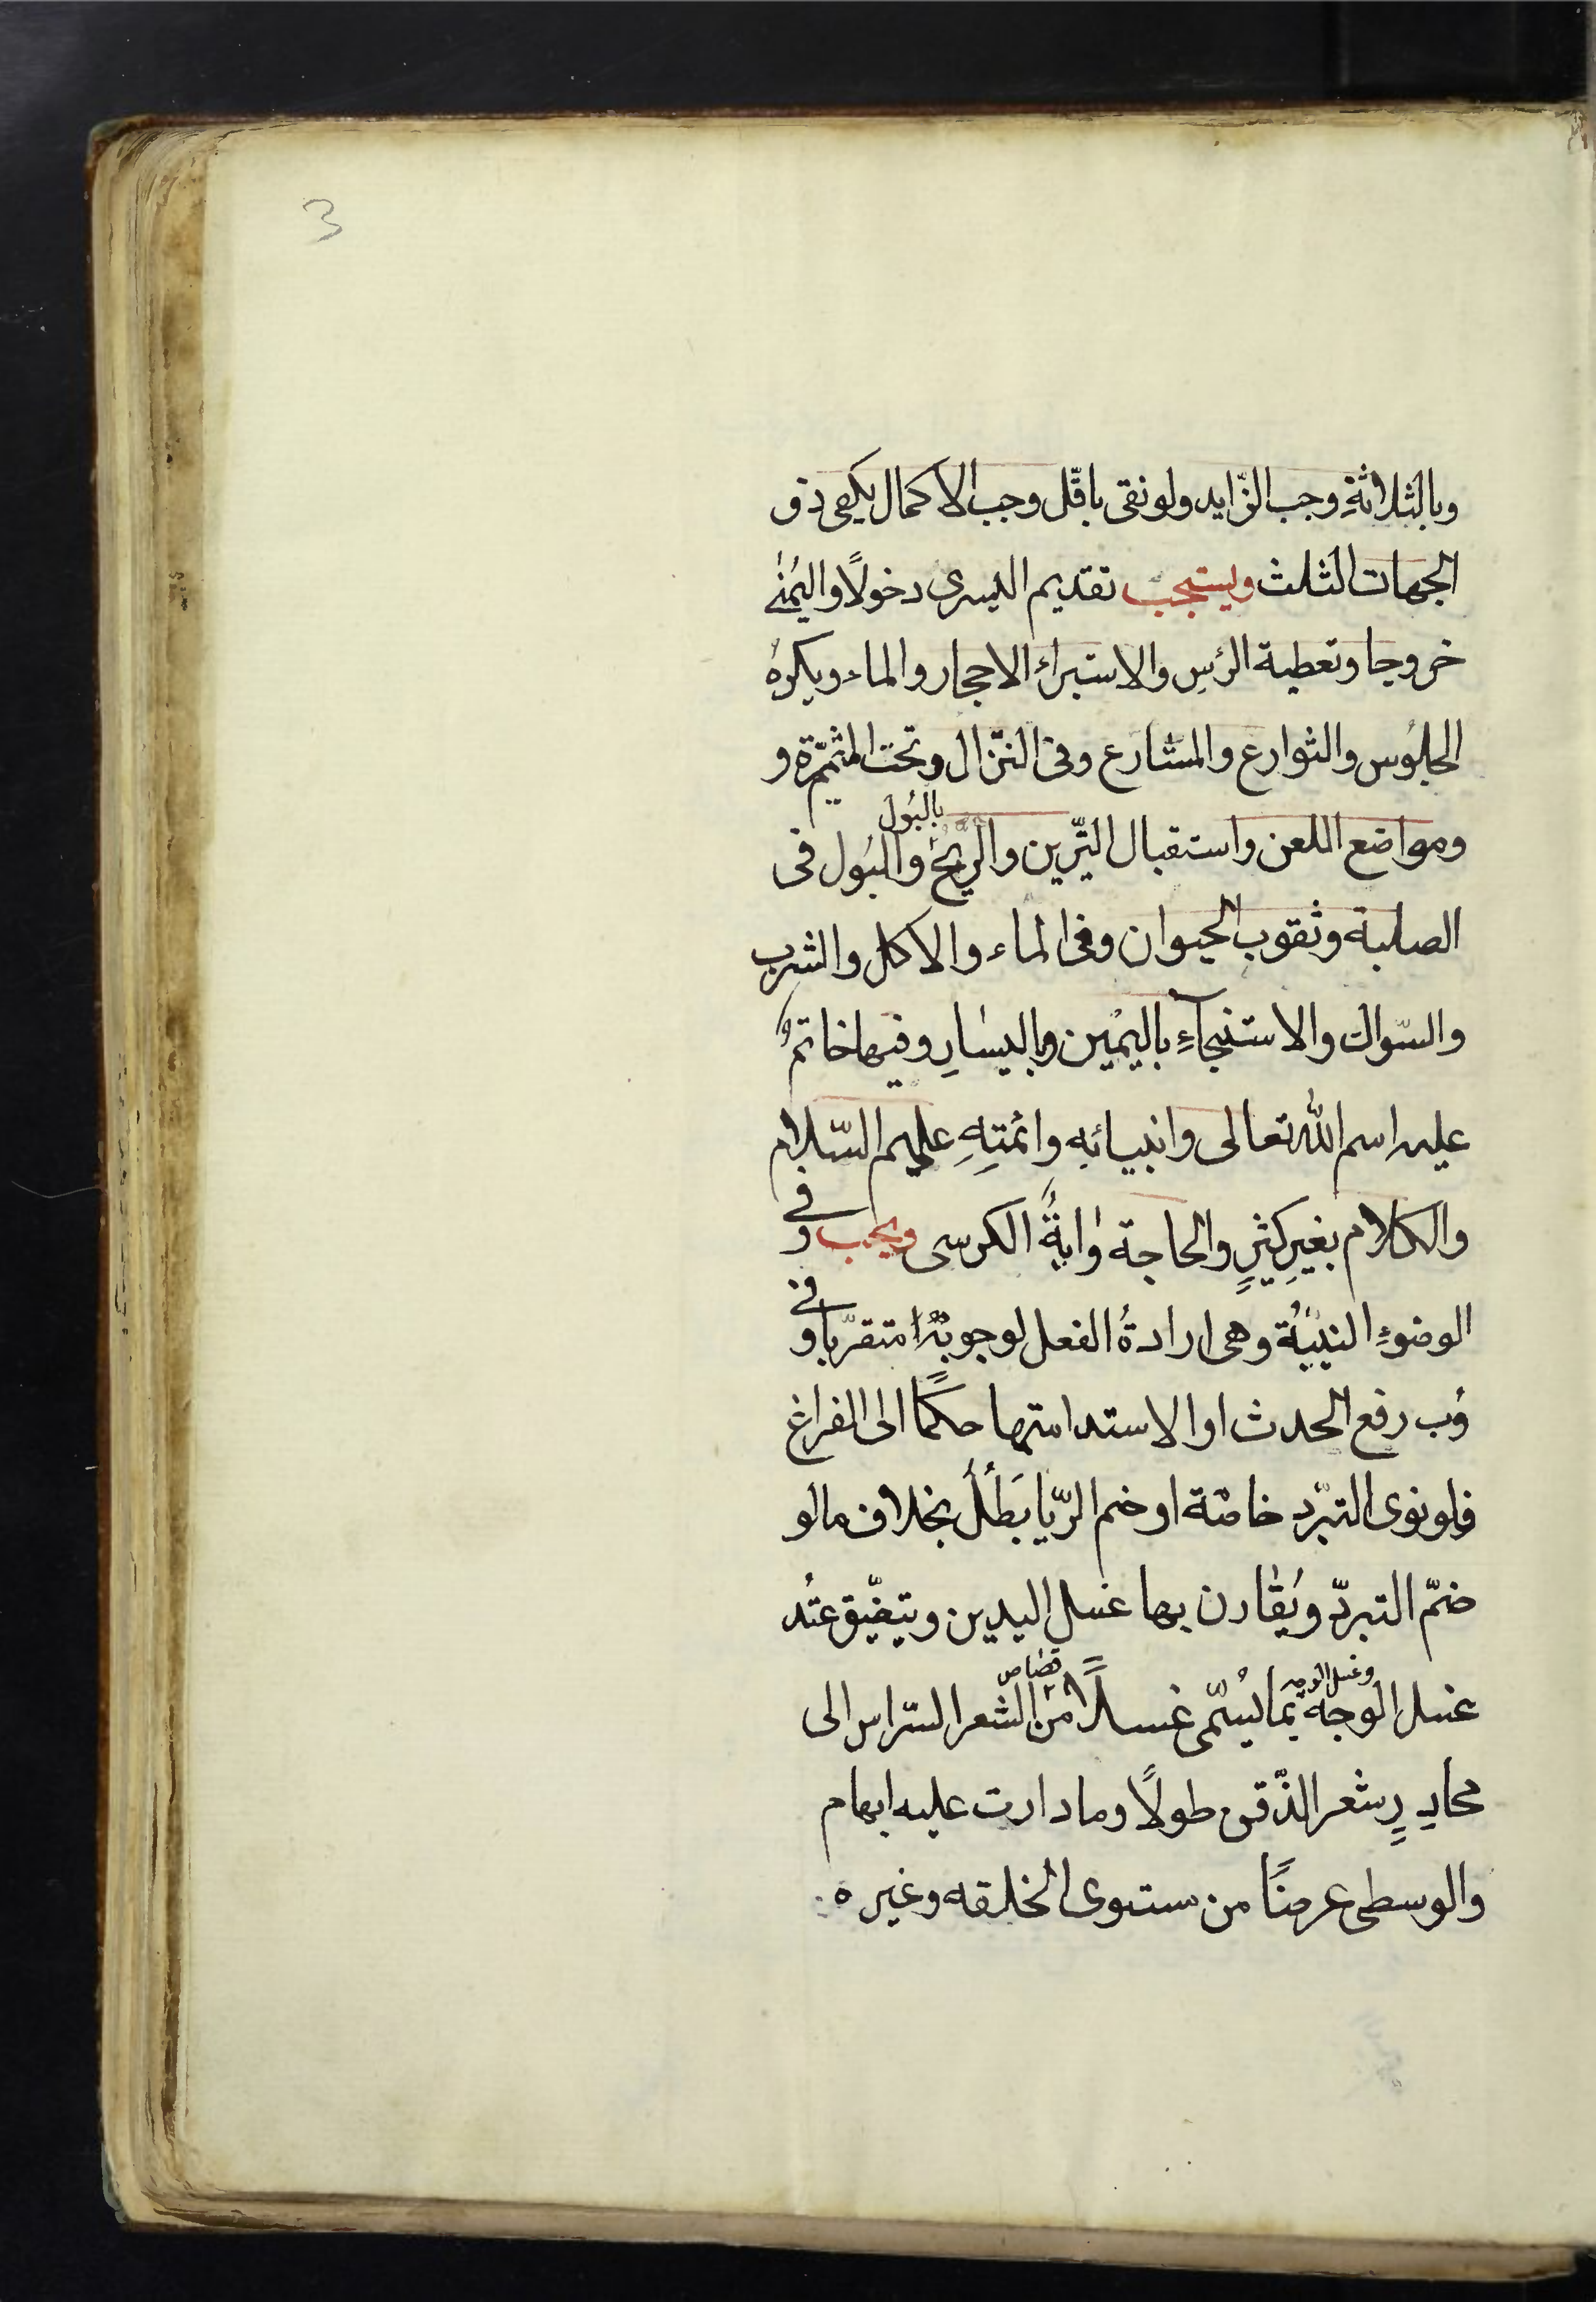 3
وبالثلاثةِ وجب الزّايد ولو نقى باقّل وجب الاكمال يكفى ذو
الجهات الثلث ويستحب تقديم اليسرى دخولًا واليمنٰى
خروجا وتعطية الرئس والاستبراء الاحجار والماء ويكره
الجلوس والثوارع والمشارع وفى النزّال وتحت المثمّرة و
بالبول
ومواضع اللعن واستقبال النيّرين والريح والبول فى
الصلبة وثقوب الحيوان وفى الماء والاكل والشرب
والسّواك والاستنجآءِ باليمين وباليسارِ وفيها خاتم
عليه اسم الله تعالى وانبيائه وائمتهِ عليهم السّلام
والكلام بغيرِ كثيرٍ والحاجة واية الكرسى ويجب فى
الوضوءِ النيّة وهى ارادةُ الفعل لوجوبه متقرّبا و فى
وب رفع الحدث او الاستدامتها حكمًا الى الفراغ
فلو نوى التبرّد خاصّة او ضم الرّيا بَطُلَ بخلاف مالو
ضمّ التبردّ ويُقارن بها غسل اليدين ويتضّيق عند
وغسل الوجه قصاص
غسل الوجه بما يُسّمى غسلًا من الشعر السّراس الى
محادِرِ شعر الذّقن طولًا وما دارت عليه ابهام
والوسطى عرضًا من ستوى الخلقه وغيره